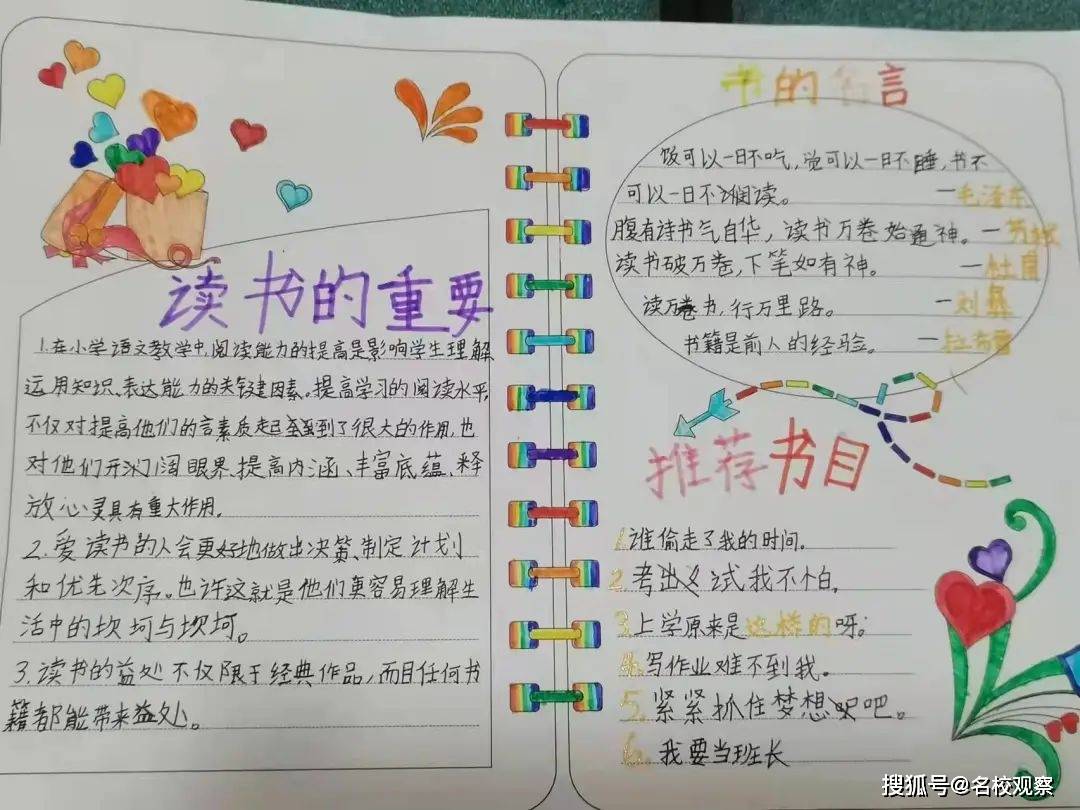 读书的重要
1.在小学语文教学中,阅读能力的提高是影响学生理解
运用知识、表达能力的关键因素。提高学习的阅读水平,
不仅对提高他们的言素质起到了很大的作用,也
对他们开阔眼界、提高内涵、丰富底蕴、释
放心灵具有重大作用。
2.爱读书的人会更好地做出决策、制定计划
和优先次序。也许这就是他们更容易理解生
活中的坎坷与坎坷。
3.读书的益处不仅限于经典作品,而且任何书
籍都能带来益处。
书的名言
饭可以一日不吃,觉可以一日不睡,书不
可以一日不阅读。 —毛泽东
腹有诗书气自华,读书万卷始通神。—苏轼
读书破万卷,下笔如有神。 —杜甫
读万卷书,行万里路。 —刘彝
书籍是前人的经验。 —拉布雷
推荐书目
1.谁偷走了我的时间。
2.考试我不怕。
3.上学原来是这样的呀。
4.写作业难不到我。
5.紧紧抓住梦想吧。
6.我要当班长
搜狐号@名校观察